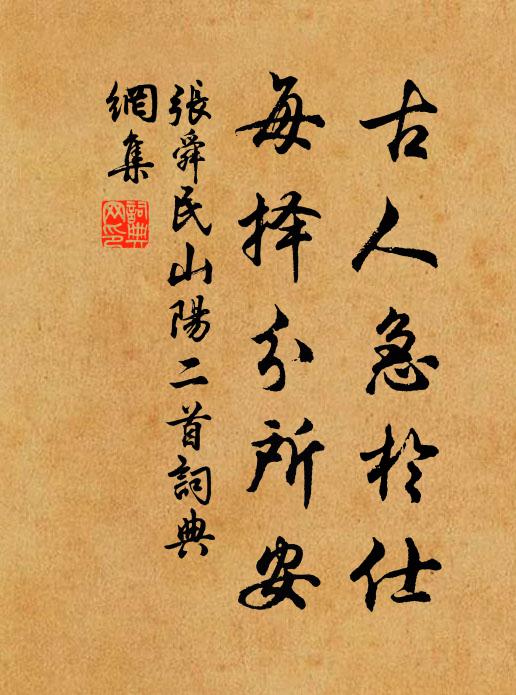 古人急於仕
每择分所安
張舜民山陽二首詞典
網集
詞典
网印